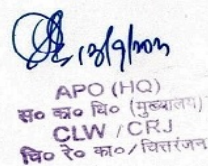 APO (HQ)
स० का० धि० (मुख्यालय)
CLW / CRJ
चि० रे० का० / चित्तरंजन